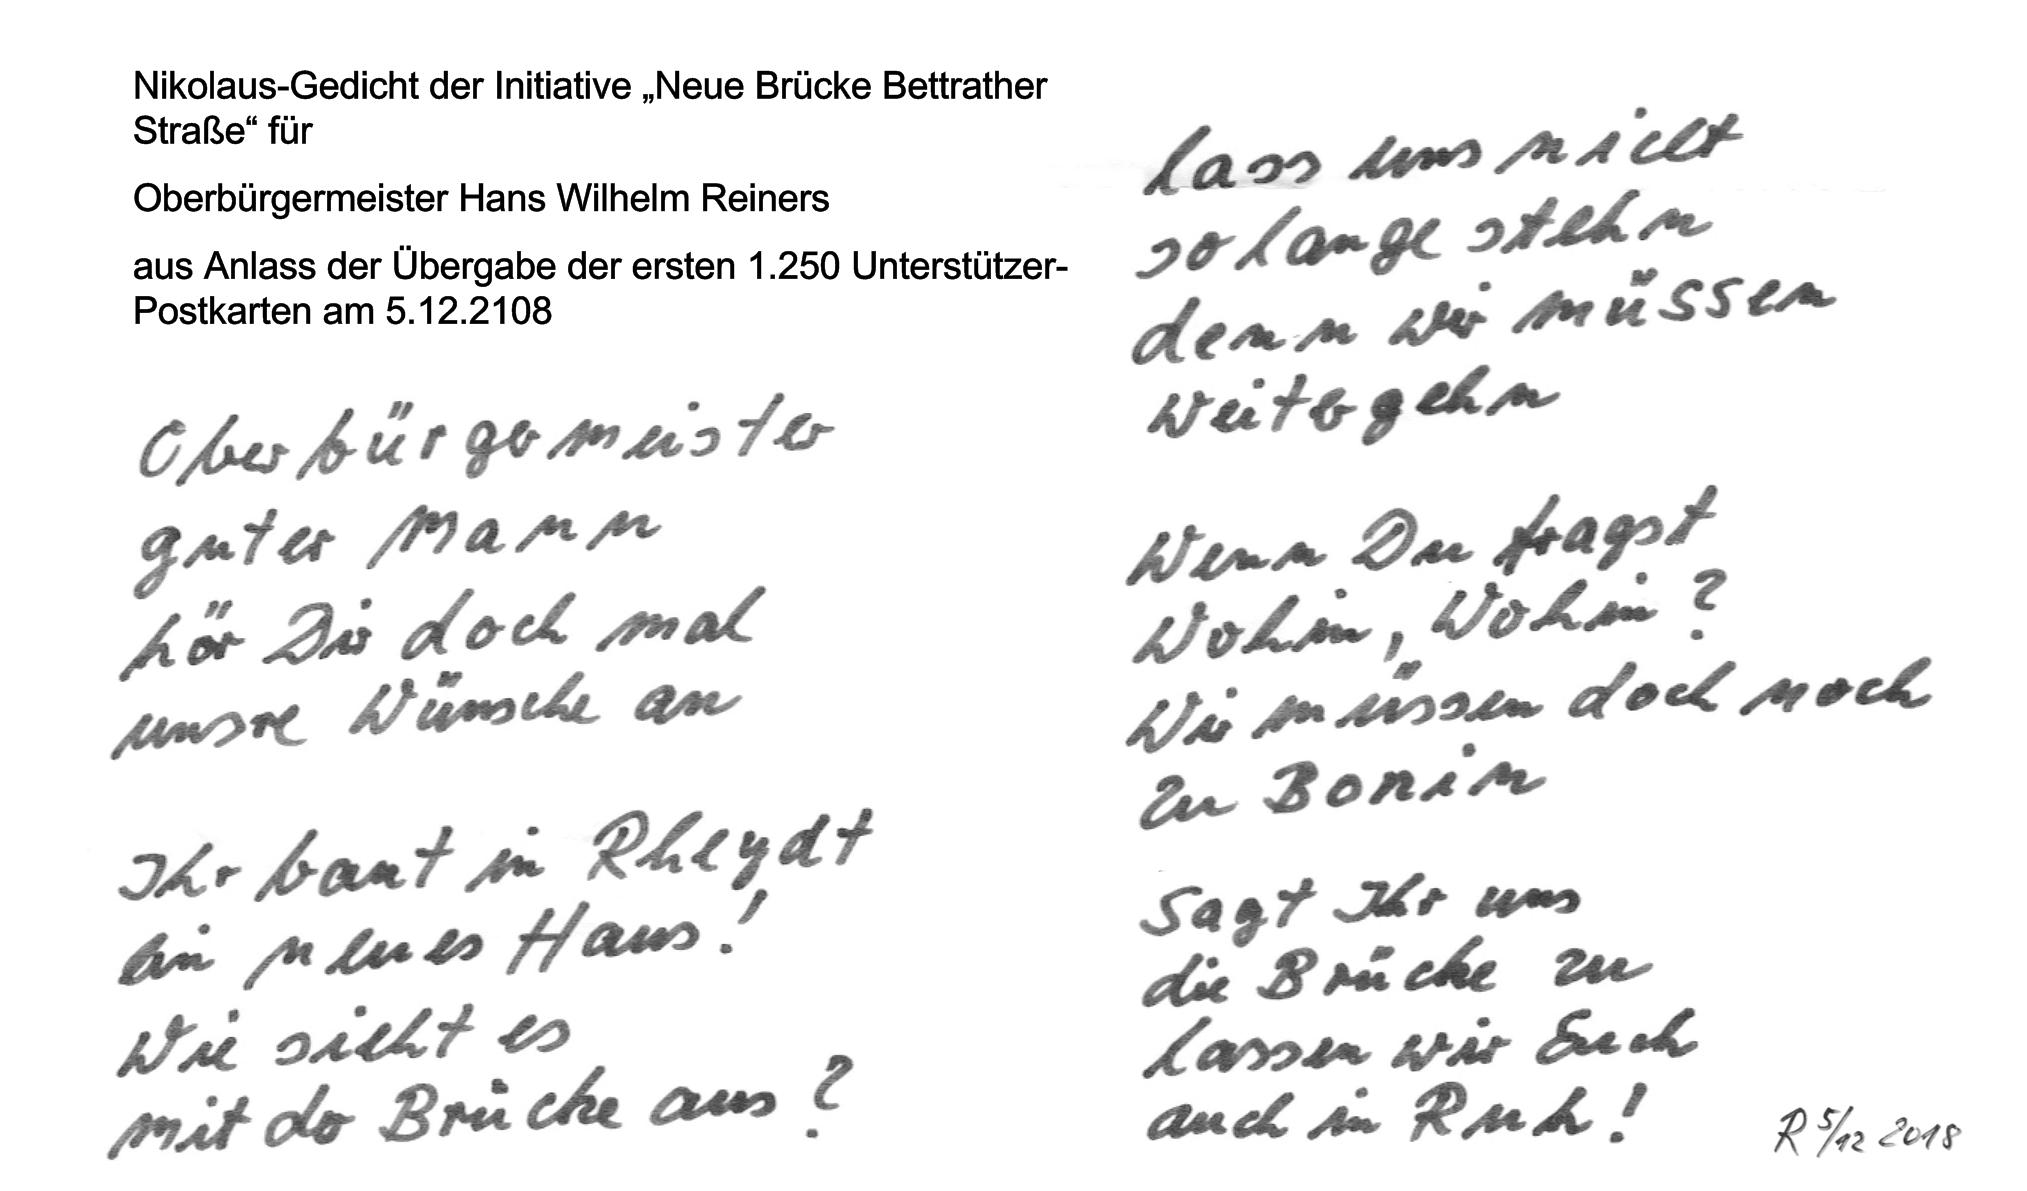 Nikolaus-Gedicht der Initiative „Neue Brücke Bettrather
Straße“ für
Oberbürgermeister Hans Wilhelm Reiners
aus Anlass der Übergabe der ersten 1.250 Unterstützer-
Postkarten am 5.12.2108
Oberbürgermeister
guter Mann
hör Dir doch mal
unsre Wünsche an
Ihr baut in Rheydt
ein neues Haus!
Wie sieht es
mit der Brücke aus?
lass uns nicht
so lange stehn
denn wir müssen
weitergehn
Wenn Du fragst
Wohin, Wohin?
Wir müssen doch noch
zu Bonin
Sagt Ihr uns
die Brücke zu
lassen wir Euch
auch in Ruh!
R 5/12 2018